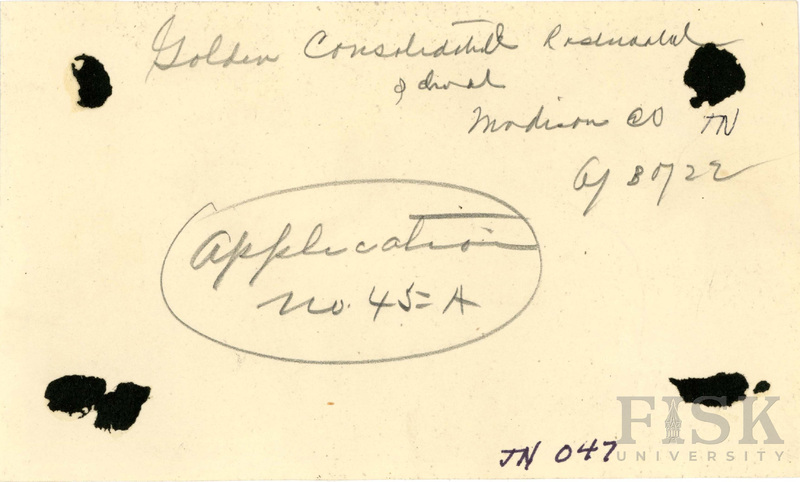 Golden Consolidated Rosenwald
School
Madison Co TN
Application
No. 45-A
TN 047
FISK
UNIVERSITY